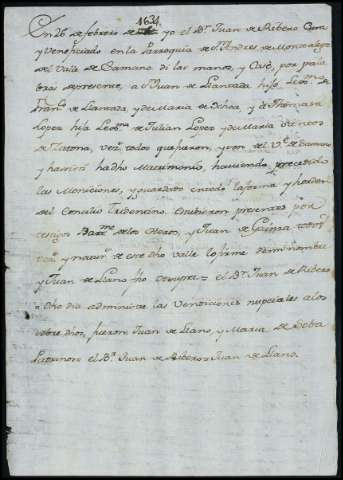 1634
En 26 de febrero de yo el Br. Juan de Ribero Cura
y Veneficiado en la Parroquia de S. Andres de
del Valle de Camano di las manos, y Casè, por pala
bras de presente, a Juan de Llantada hijo Lexmo. de
Franco. de Llantada, y de Maria de y de Thomasa
Lopez hija Lexma. de Julian Lopez y de Maria
de vecos. todos que fueron, y son de el Ve.
y haviendo hadho Matrimonio, haviendo precedido
las Moniciones, y guardado en todo la forma y horden
del Concilio Tridentino. Estubieron presentes por
testigos Barme. de los Heros, y Juan de Gainza
y natur. de este dho valle lo firme de mi nombre
y Juan de Llano fho ut supra = el Br. Juan de Ribero
= dho dia administre las Vendiciones nupciales a los
sobre dios, fueron Juan de Llano, y Maria de
Padrinos el Br. Juan de Ribero = Juan de Llano.